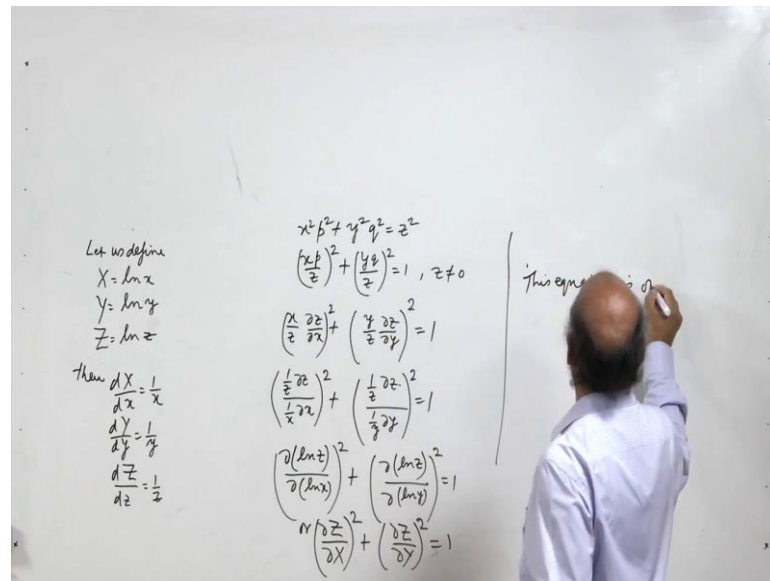 Let us define
X = ln x
Y = ln y
Z = ln z
then dX/dx = 1/x
dY/dy = 1/y
dZ/dz = 1/z
x²p² + y²q² = z²
(xp/z)² + (yq/z)² = 1, z ≠ 0
(x/z ∂z/∂x)² + (y/z ∂z/∂y)² = 1
((1/z ∂z)/(1/x ∂x))² + ((1/z ∂z)/(1/y ∂y))² = 1
(∂(ln z)/∂(ln x))² + (∂(ln z)/∂(ln y))² = 1
or (∂Z/∂X)² + (∂Z/∂Y)² = 1
This equ is of